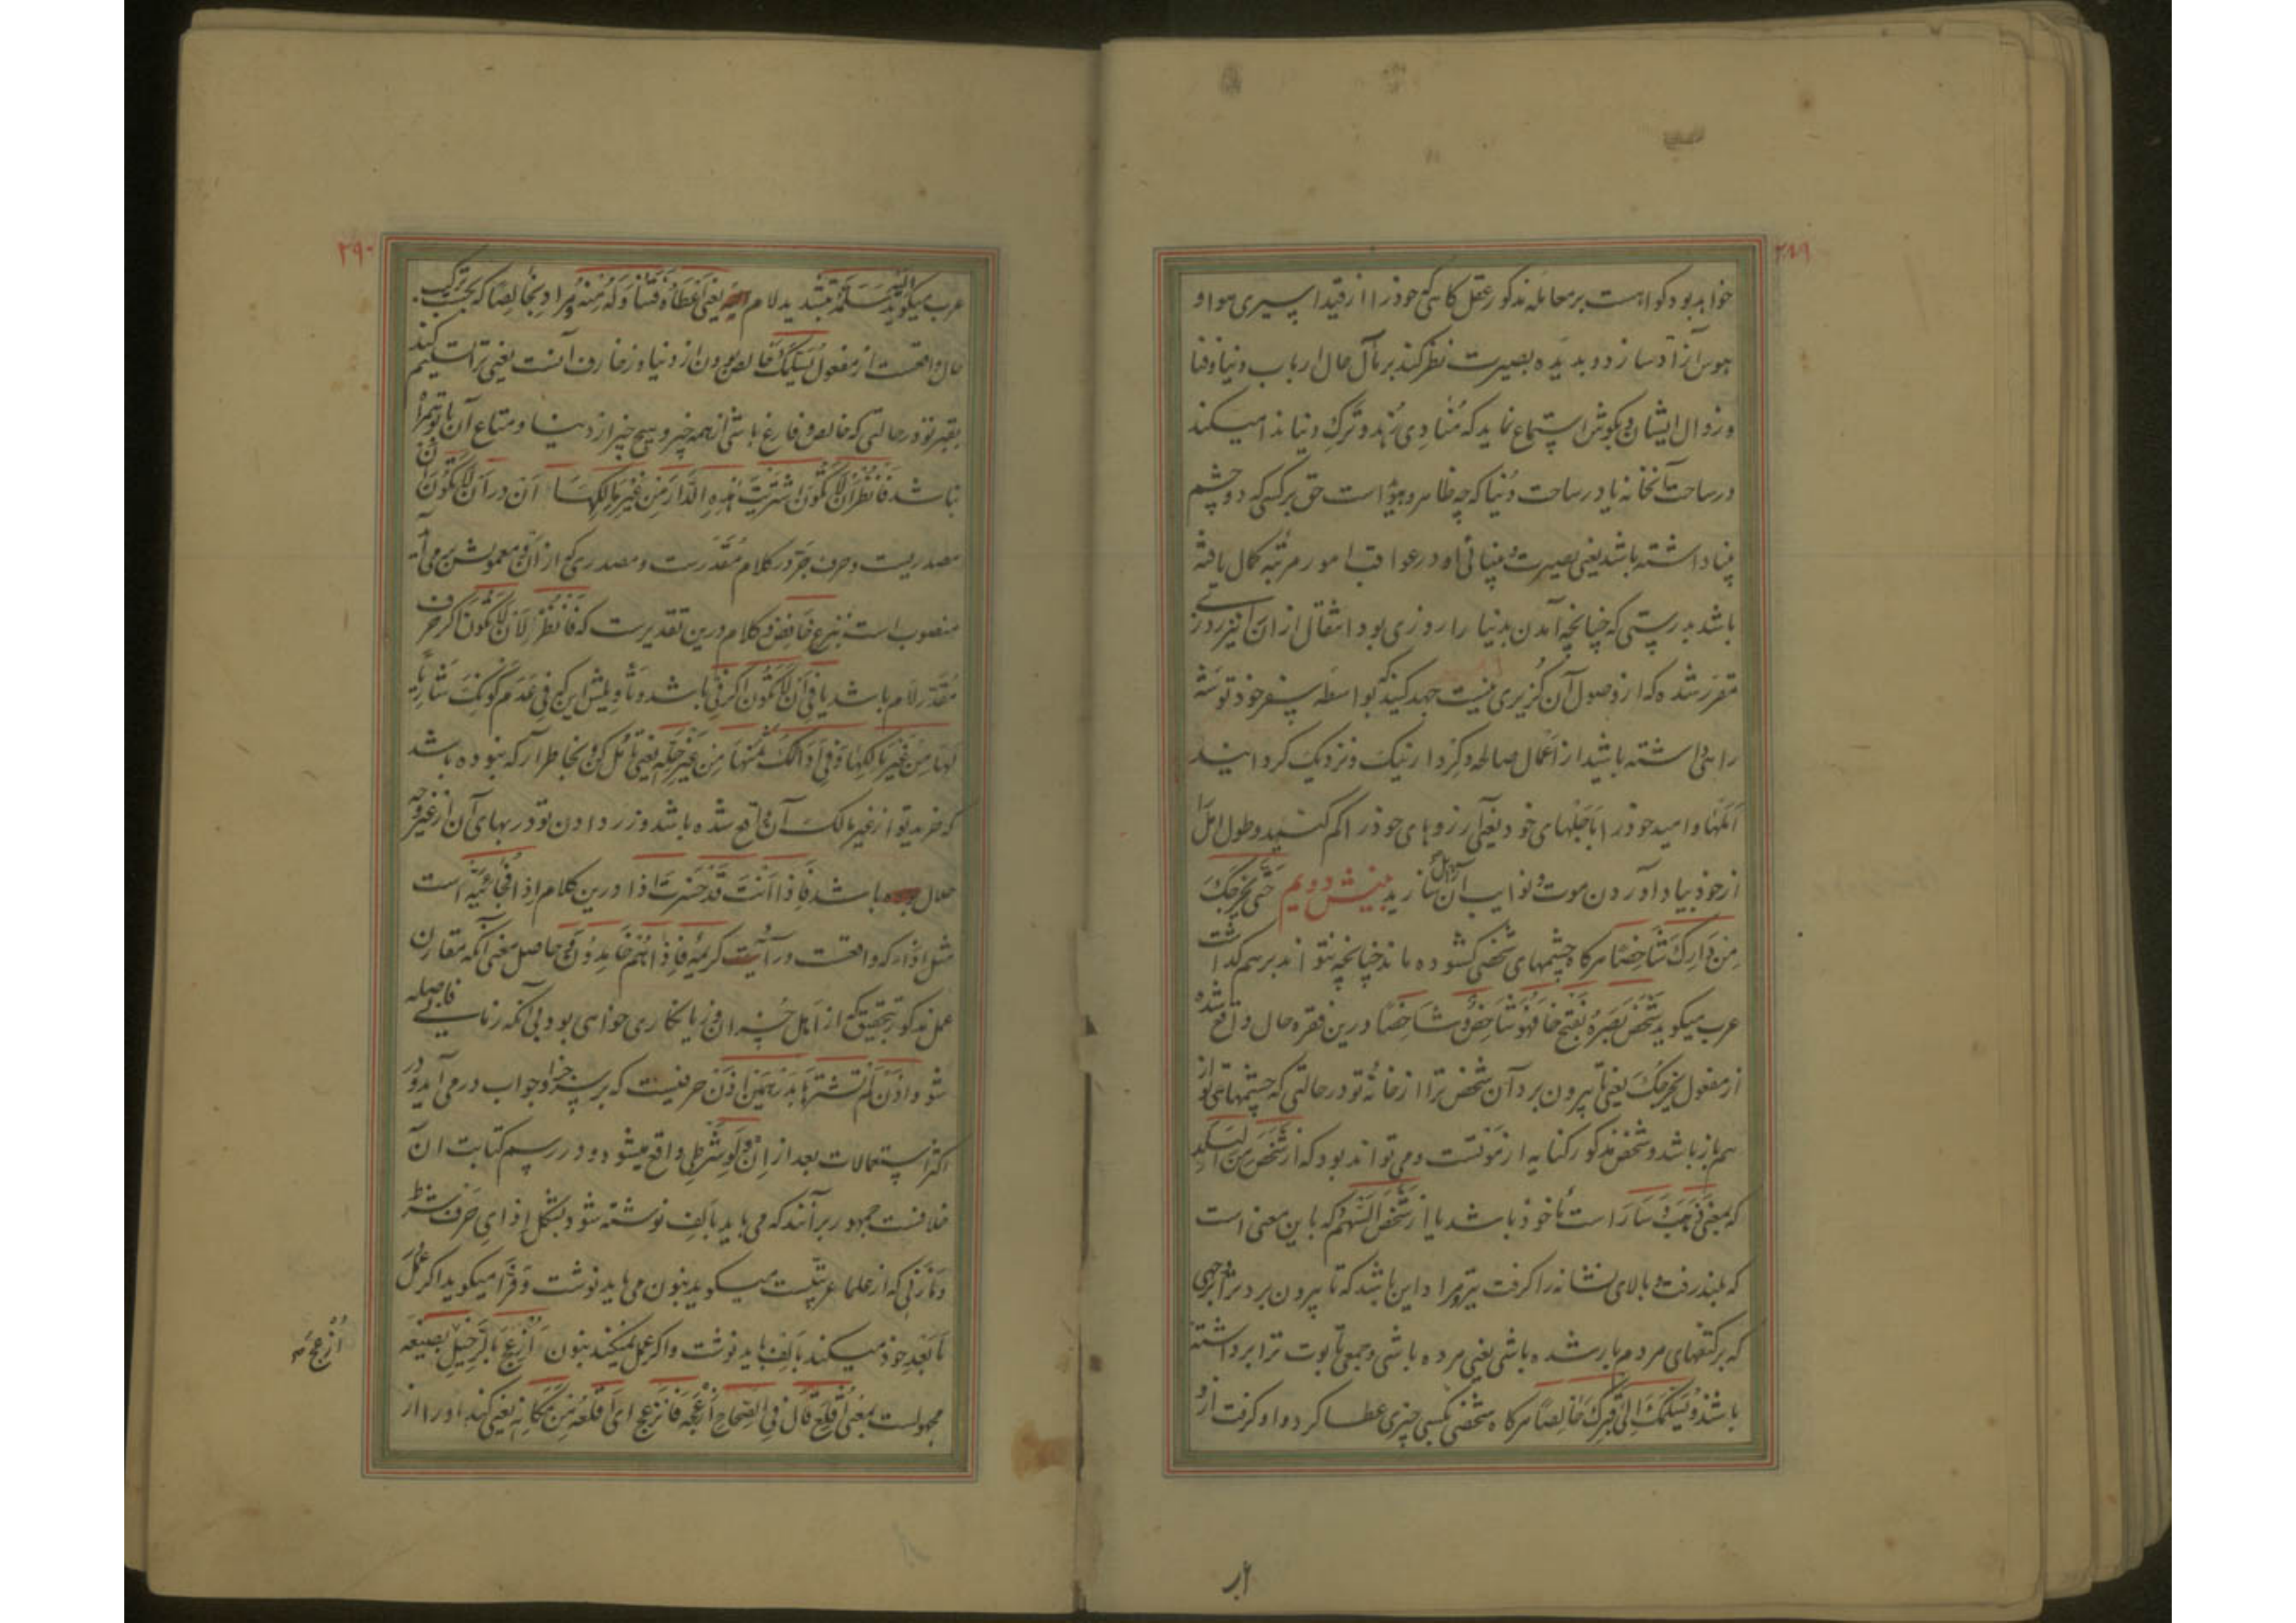 ۲۸۹
خواهد بود کواهست بر معامله مذکور عقل کاهی که خود را از قید اسیری هوا و
هوس آزاد سازد و بدیده بصیرت نظر کند بر مآل حال ارباب دنیا و فنا
و زوال ایشان و بکوش استماع نماید که منادی زهد و ترک دنیا ندا میکند
در ساحت آنخانه یا در ساحت دنیا که چه ظاهر و هویداست حق بر کسی که دو چشم
بینا داشته باشد یعنی بصیرت و بینائی او در عواقب امور مرتبه کمال یافته
باشد بدرستی که چنانچه آمدن بدنیا را روزی بود انتقال از ان نیز روزی
مقرر شده که از وصول آن گزیری نیست جهد کنید که بواسطه سفر خود توشه
راهی داشته باشید از اعمال صالحه و کردار نیک و نزدیک کردانید
املها و امید خود را باجلهای خود یعنی آرزوهای خود را کم کنید و طول امل را
از خود بیاد آوردن موت و نوایب آن زایل سازید بینش دویم حتی یخرجک
من دارک شاخصا هرکاه چشمهای شخصی کشوده ماند چنانچه نتواند برهم کذاشت
عرب میکوید شخص بصره بفتح خا فهو شاخص و شاخصا درین فقره حال واقع شده
از مفعول یخرجک یعنی تا بیرون برد آن شخص ترا از خانه تو در حالتی که چشمهای تو از
هم باز باشد و شخص مذکور کنایه از موتست و می تواند بود که از شخص من البلد
که بمعنی ذهب و سار است ماخوذ باشد یا از شخص السهم که باین معنی است
که بلند رفت و بالای نشانه را کرفت تیر و مراد این باشد که تا بیرون برد ترا بر وجهی
که بر کتفهای مردم بار شده باشی یعنی مرده باشی و جمعی تابوت ترا برداشته
باشند و یسلمک الی قبرک خالصا هرکاه شخصی بکسی چیزی عطا کرد و او کرفت از و
۲۹۰
عرب میکوید سلمه الیه بتشدید لام یعنی اعطاه فتناوله منه و مراد بخالصا که بحسب ترکیب
حال واقعست از مفعول یسلمک خالص بودن از دنیا و زخارف آنست یعنی ترا تسلیم کند
بقبر تو در حالتی که خالص و فارغ باشی از همه چیز و هیچ چیز از دنیا و متاع آن با تو همراه
نباشد فانظر ان لا تکون اشتریت هذه الدار من غیر مالکها ان در ان لا تکون ان
مصدریست و حرف جر در کلام مقدرست و مصدری که از ان و معمولش بهم می آید
منصوب است بنزع خافض و کلام درین تقدیرست که فانظر لان لا تکون اکر حرف
مقدر لام باشد یا فی ان لا تکون اکر فی باشد و تاویلش این که فی عدم کونک شاریا
لها من غیر مالکها و فی ادائک ثمنها من غیر حله یعنی تامل کن و بخاطر آر که نبوده باشد
که خرید تو از غیر مالک آن واقع شده باشد و زر دادن تو در بهای آن از غیر وجه
حلال باشد فاذا انت قد خسرت اذا درین کلام اذا فجائیه است
مثل اذا که واقعست در آیت کریمه فاذا هم خامدون و حاصل معنی آنکه مقارن
عمل مذکور تحقیق که از اهل خسران و زیانکاری خواهی بود بی آنکه زمانی فاصله
شود اذن لم تشترها بدرهمین اذن حرفیست که بر سر جزا و جواب در می آید و در
اکثر استعمالات بعد از ان و لو شرطی واقع میشود و در رسم کتابت ان
خلافست جمهور برآنند که می باید بالف نوشته شود بشکل اذا ای حرف شرط
و مازنی که از علماء عربیتست میکوید بنون می باید نوشت و فرا میکوید اکر عمل
مابعد خود میکند بالف باید نوشت و اکر عمل نمیکند بنون ازعج بالرحیل بصیغه
مجهولست بمعنی اقلع قال فی الصحاح ازعجه فانزعج ای اقلعه من مکانه یعنی کند او را از
ازعج